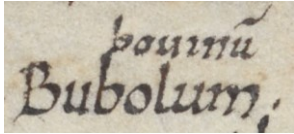 bouinũ
Bubolum;